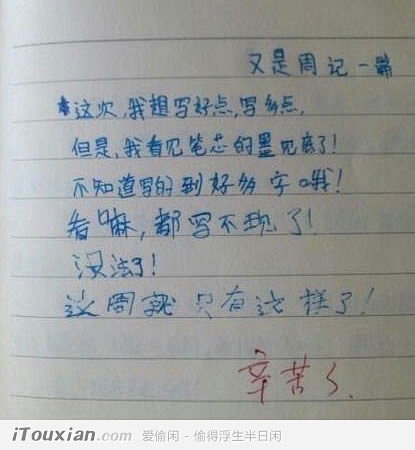 又是周记一篇
这次,我想写好点,写多点,
但是,我看见笔芯的墨见底了!
不知道写的到好多字哦!
看嘛,都写不现了!
没法了!
这周就只有这样了!
辛苦了.
iTouxian.com 爱偷闲 - 偷得浮生半日闲